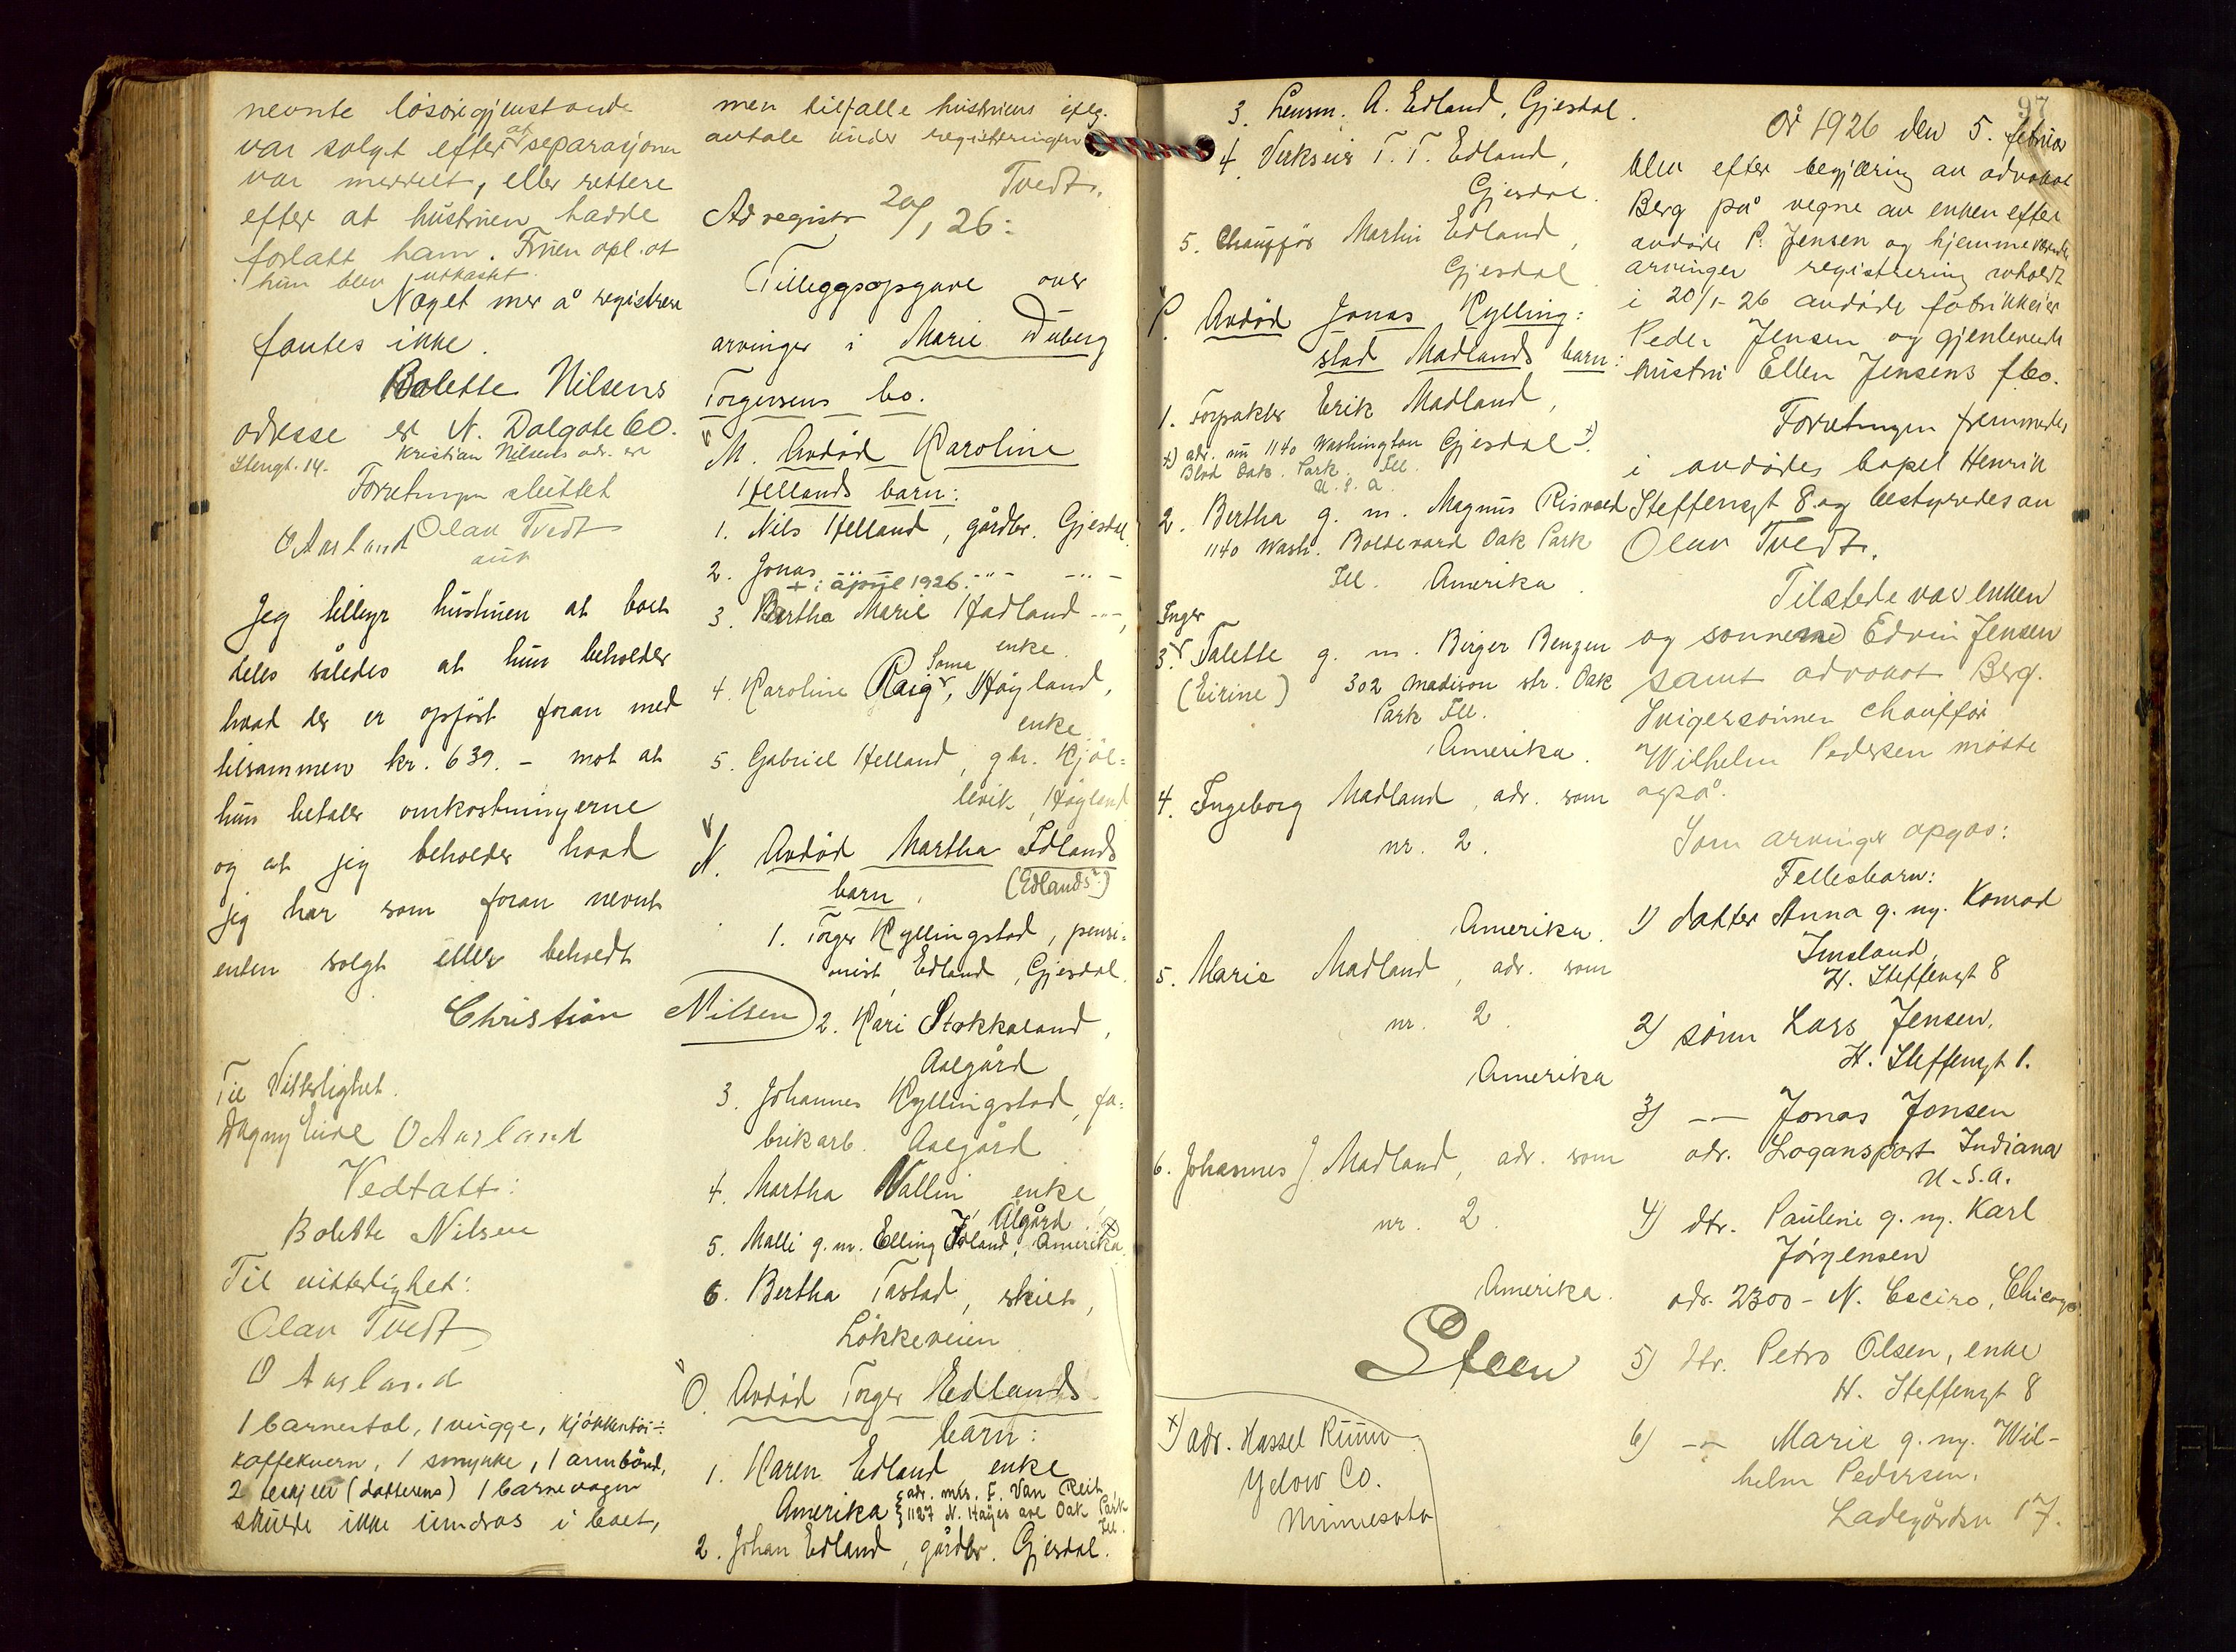 nevnte løsøregjenstande
var solgt efter at separasjonen
var meddelt, eller rettere
efter at hustruen hadde
forlatt ham. Fruen opl. at
hun blev utkastet.
Noget mer å registrere
fantes ikke.
Bolette Nilsens
adresse er N. Dalgate 60.
Kristian Nilsens adr. er
Stengt. 14.
Forretningen sluttet
Olav Tvedt
O Aarland
aut
Jeg tilbyr hustruen at boet
deles således at hun beholder
hvad der er opført foran med
tilsammen kr. 639.- mot at
hun betaler omkostningerne
og at jeg beholder hvad
jeg har som foran nevnt
enten solgt eller beholdt
Christian Nilsen
Til Vitterlighet.
Dagny Eide O Aarland
Vedtatt:
Bolette Nilsen
Til vitterlighet:
Olav Tvedt
O Aarland
1 barnestol, 1 vugge, kjøkkentøi ÷
kaffekvern, 1 smykke, 1 armbånd,
2 teskjeer (datterens) 1 barnevogn
skulde ikke inndras i boet,
men tilfalle hustruen iflg.
avtale under registreringen
Tvedt.
Ad registr 20/1 26:
Tilleggsopgave over
arvinger i Marie Duberg
Torgersens bo.
M. Avdød Karoline
Hellands barn:
1. Nils Helland, gårdbr. Gjesdal
2. Jonas -"- -"- -"-
+ i april 1926.
3. Bertha Marie Hadland -"-,
enke.
4. Karoline Raig, Soma, Høyland,
enke.
5. Gabriel Helland, gbr. Kjøl-
levik, Høyland
N. Avdød Martha Edlands
barn. (Edlands?)
1. Torger Kyllingstad, pensi-
onist, Edland, Gjesdal.
2. Kari Stokkaland,
Aalgård
3. Johannes Kyllingstad, fa-
brikarb. Aalgård
4. Martha Vallin enke
Ålgård
5. Malli g. m. Elling Idland, Amerika x)
6. Bertha Tastad, skilt,
Løkkeveien
O. Avdød Torger Edlands
barn:
1. Karen Edland enke
Amerika { adr. mrs. F. Van Reit,
1127 N. Hayes ave Oak Park
Ill.
2. Johan Edland, gårdbr. Gjesdal.
3. Lensm. A. Edland, Gjesdal.
4. Verkseier T. T. Edland,
Gjesdal.
5. Chauffør Martin Edland,
Gjesdal
P. Avdød Jonas Kylling-
stad Madlands barn:
1. Forpakter Erik Madland,
Gjesdal x).
x) adr. nu 1140 Washington
Blvd Oak. Park. Ill.
U. S. A.
2. Bertha g. m. Magnus Risvold
1140 Wash. Boldevard Oak Park
Ill. Amerika.
Inger
3. Talette g. m. Birger Benzen
(Eirine) 302 Madison str. Oak
Park Ill.
Amerika.
4. Ingeborg Madland, adr. som
nr. 2.
Amerika.
5. Marie Madland, adr. som
nr. 2.
Amerika
6. Johannes J. Madland, adr. som
nr. 2.
Amerika.
Steen
x) adr. Hassel Ruun
Yelow Co.
Minnesota
97
År 1926 den 5. februar
blev efter begjæring av advokat
Berg på vegne av enken efter
avdøde P. Jensen og hjemmeværende
arvinger registrering avholdt
i 20/1-26 avdøde fabrikkeier
Peder Jensen og gjenlevende
hustru Ellen Jensens f.bo.
Forretningen fremmedes
i avdødes bopel Henrik
Steffensgt 8 og bestyredes av
Olav Tvedt.
Tilstede var enken
og sønnene Edvin Jensen
samt advokat Berg.
Svigersønnen chauffør
Wilhelm Pedersen møtte
også.
Som arvinger opgas:
Fellesbarn:
1) datter Anna g. m. Konrad
Imsland,
H. Steffensgt 8
2) sønn Lars Jensen,
H. Steffensgt 1.
3) -"- Jonas Jensen
adr. Logansport Indiana
U.S.A.
4) dtr. Pauline g. m. Karl
Jørgensen
adr. 2300 - N. Ceciro, Chicago
5) dtr. Petra Olsen, enke
H. Steffensgt 8
6) -"- Marie g. m. Wil-
helm Pedersen,
Ladegårdsv 17.